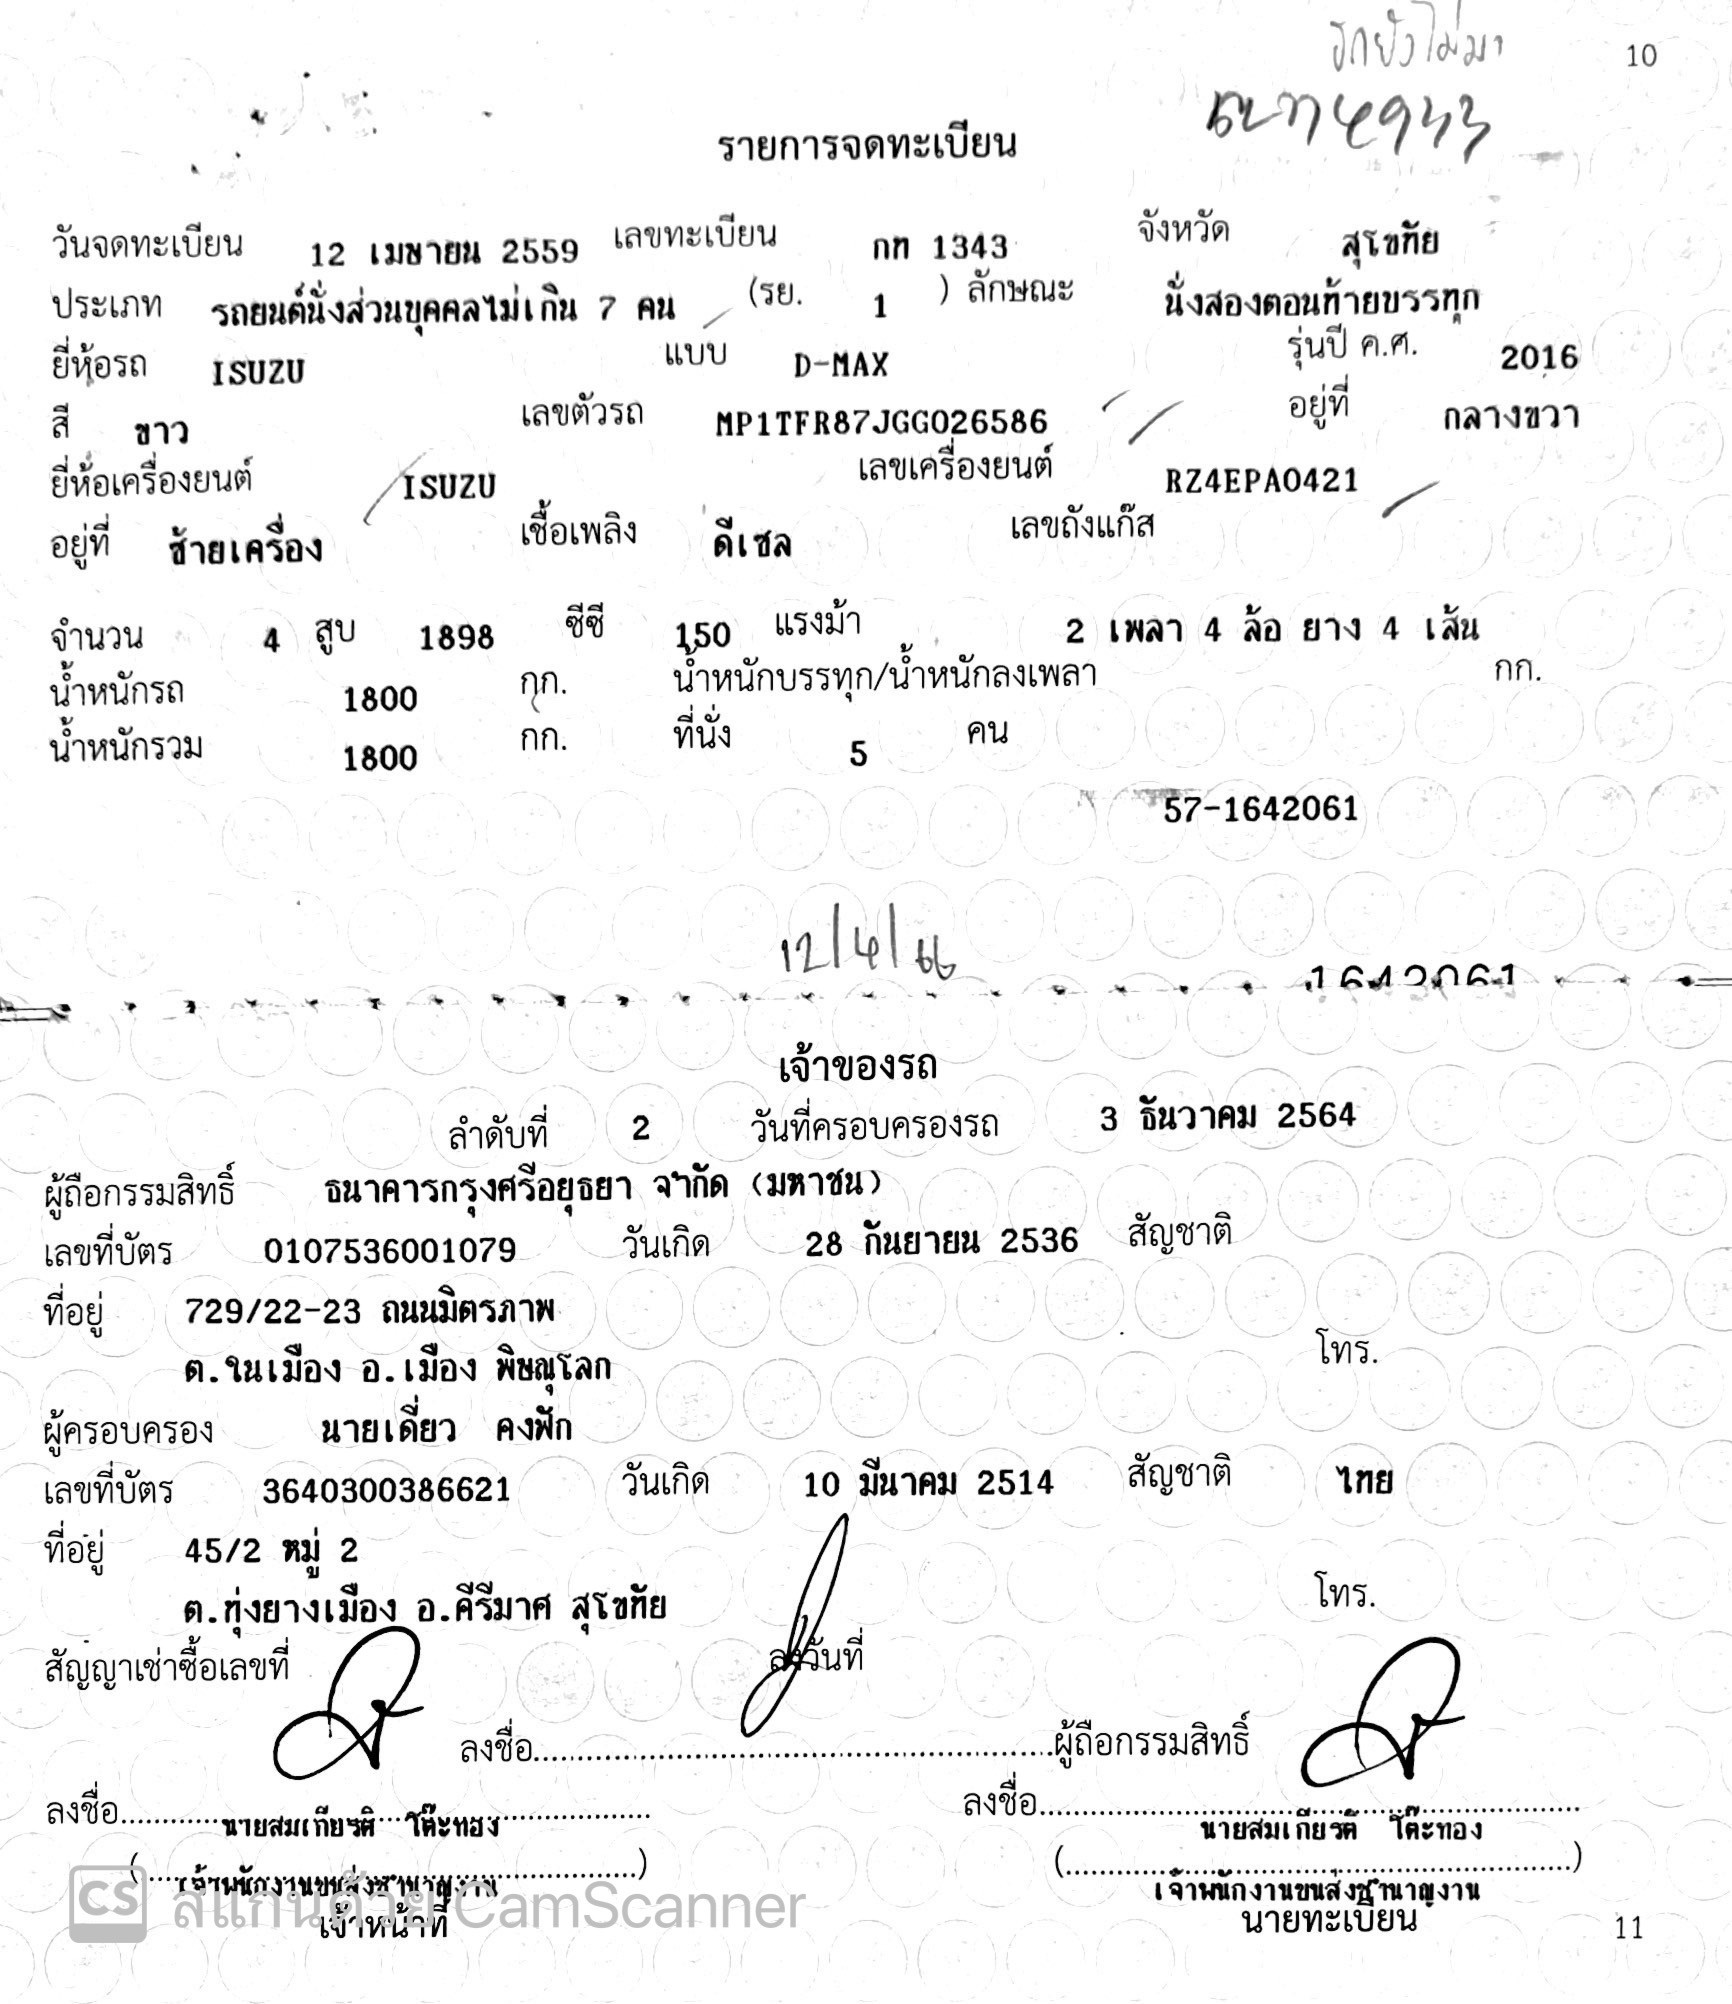 10
รถยังไม่มา
รายการจดทะเบียน
วันจดทะเบียน 12 เมษายน 2559 เลขทะเบียน กท 1343 จังหวัด สุโขทัย
ประเภท รถยนต์นั่งส่วนบุคคลไม่เกิน 7 คน (รย. 1 ) ลักษณะ นั่งสองตอนท้ายบรรทุก
ยี่ห้อรถ ISUZU แบบ D-MAX รุ่นปี ค.ศ. 2016
สี ขาว เลขตัวรถ MP1TFR87JGG026586 อยู่ที่ กลางขวา
ยี่ห้อเครื่องยนต์ ISUZU เลขเครื่องยนต์ RZ4EPA0421
อยู่ที่ ซ้ายเครื่อง เชื้อเพลิง ดีเซล เลขถังแก๊ส
จำนวน 4 สูบ 1898 ซีซี 150 แรงม้า 2 เพลา 4 ล้อ ยาง 4 เส้น
น้ำหนักรถ 1800 กก. น้ำหนักบรรทุก/น้ำหนักลงเพลา กก.
น้ำหนักรวม 1800 กก. ที่นั่ง 5 คน
57-1642061
12/4/66
1642061
เจ้าของรถ
ลำดับที่ 2 วันที่ครอบครองรถ 3 ธันวาคม 2564
ผู้ถือกรรมสิทธิ์ ธนาคารกรุงศรีอยุธยา จำกัด (มหาชน)
เลขที่บัตร 0107536001079 วันเกิด 28 กันยายน 2536 สัญชาติ
ที่อยู่ 729/22-23 ถนนมิตรภาพ
ต.ในเมือง อ.เมือง พิษณุโลก โทร.
ผู้ครอบครอง นายเดี่ยว คงฟัก
เลขที่บัตร 3640300386621 วันเกิด 10 มีนาคม 2514 สัญชาติ ไทย
ที่อยู่ 45/2 หมู่ 2
ต.ทุ่งยางเมือง อ.คีรีมาศ สุโขทัย โทร.
สัญญาเช่าซื้อเลขที่ ลงวันที่
ลงชื่อ....................ผู้ถือกรรมสิทธิ์
ลงชื่อ....................นายสมเกียรติ โต๊ะทอง ลงชื่อ....................นายสมเกียรติ โต๊ะทอง
(เจ้าพนักงานขนส่งชำนาญงาน) (เจ้าพนักงานขนส่งชำนาญงาน)
เจ้าหน้าที่ นายทะเบียน
11
CS สแกนด้วย CamScanner